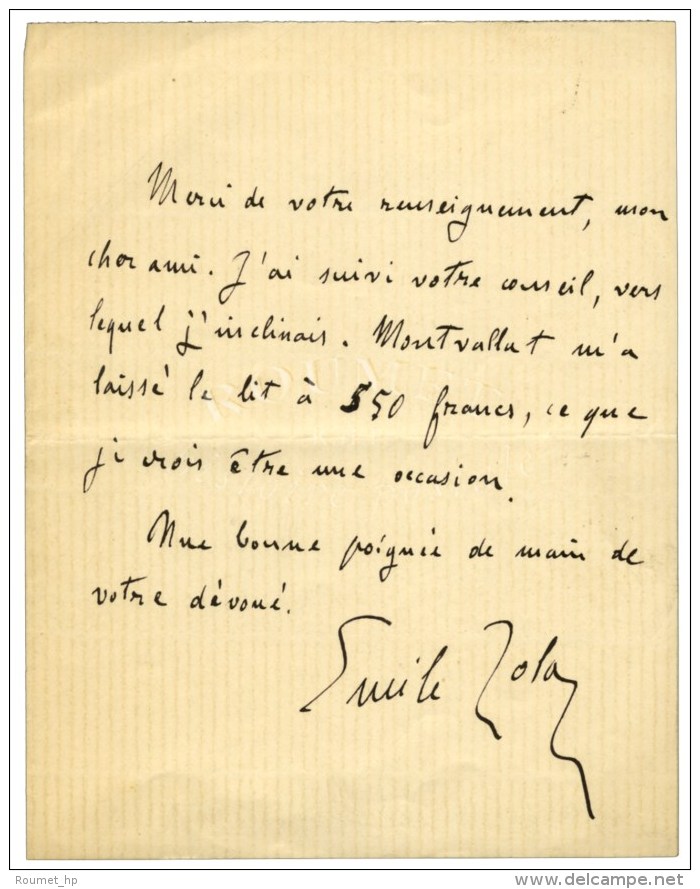 Merci de votre renseignement, mon
cher ami. J'ai suivi votre conseil, vers
lequel j'inclinais. Montvallat m'a
laissé le lit à 550 francs, ce que
je crois être une occasion.
Une bonne poignée de main de
votre dévoué.
Emile Zola
Roumet_hp
delcampe.net